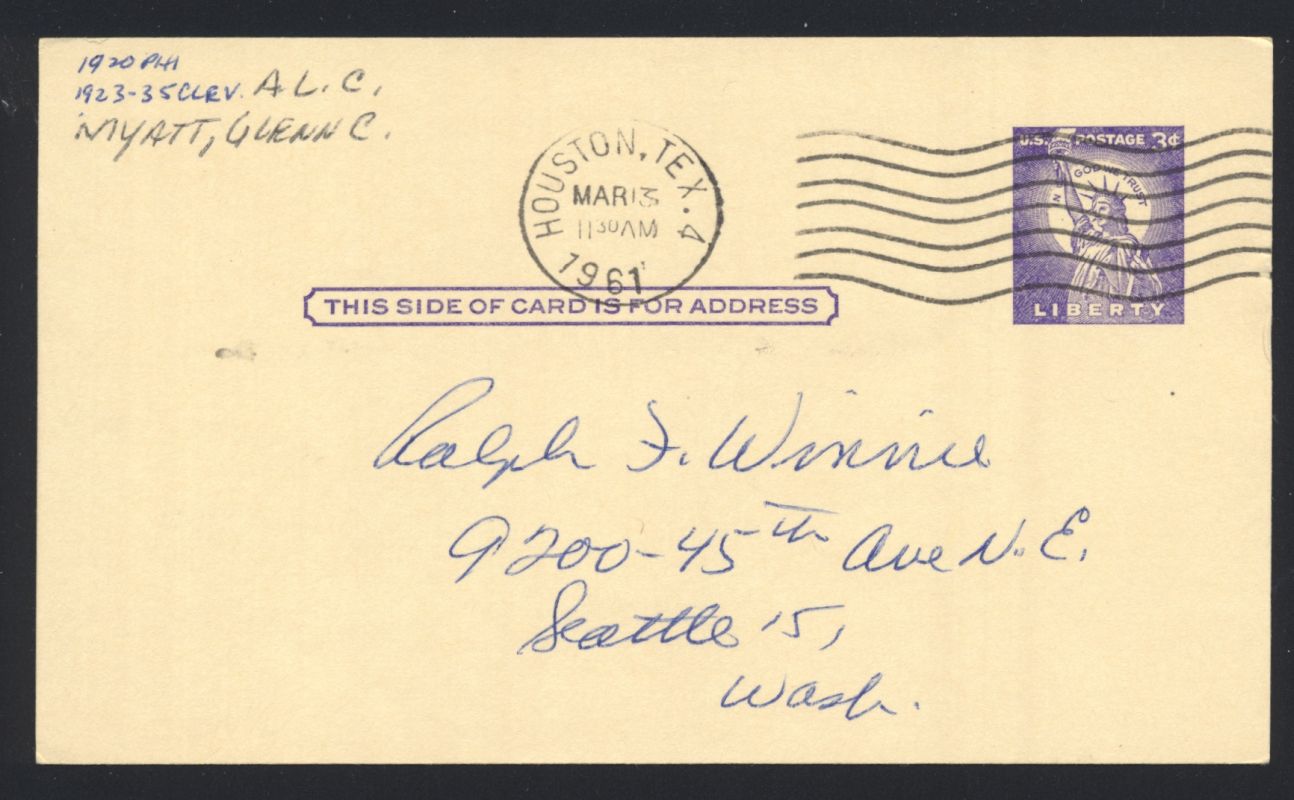 1920 PHI
1923-35 CLEV. A L. C.
MYATT, GLENN C.
HOUSTON, TEX. 4
MAR 13
11 30 AM
1961
U.S. POSTAGE 3¢
IN GOD WE TRUST
LIBERTY
THIS SIDE OF CARD IS FOR ADDRESS
Ralph F. Winnie
9200-45th Ave N.E.
Seattle 15,
Wash.